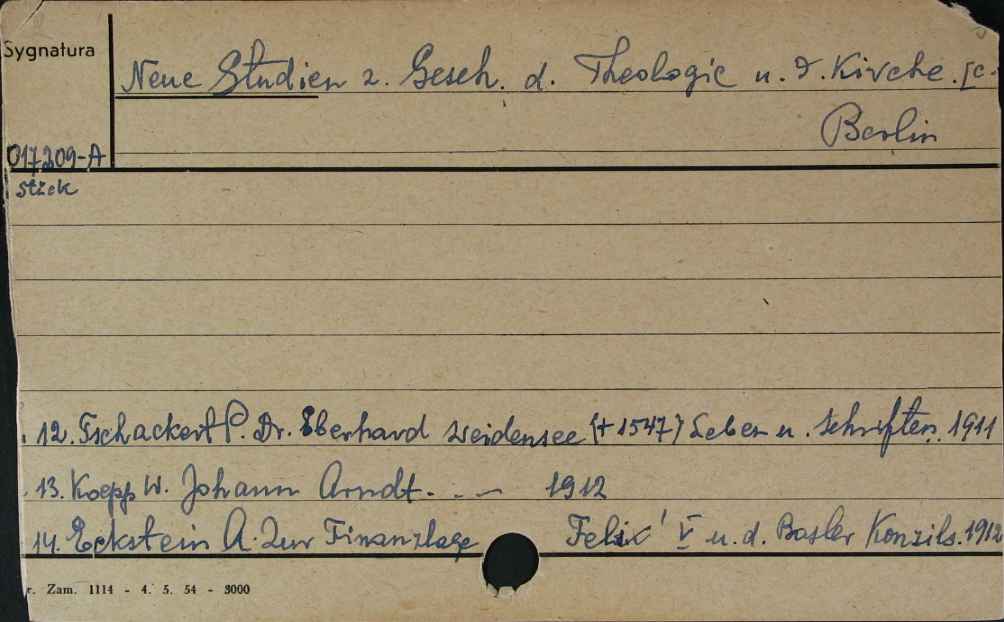 Sygnatura
Neue Studien z. Gesch. d. Theologie u. d. Kirche. [c.
Berlin
017209-A
stick
12. Tschackert P. Dr. Eberhard Weidensee (+ 1547) Leben u. Schriften. 1911
13. Koepp W. Johann Arndt. . . — 1912
14. Eckstein A. Zur Finanzlage Felix' V u. d. Basler Konzils. 1912
r. Zam. 1114 - 4. 5. 54 - 3000